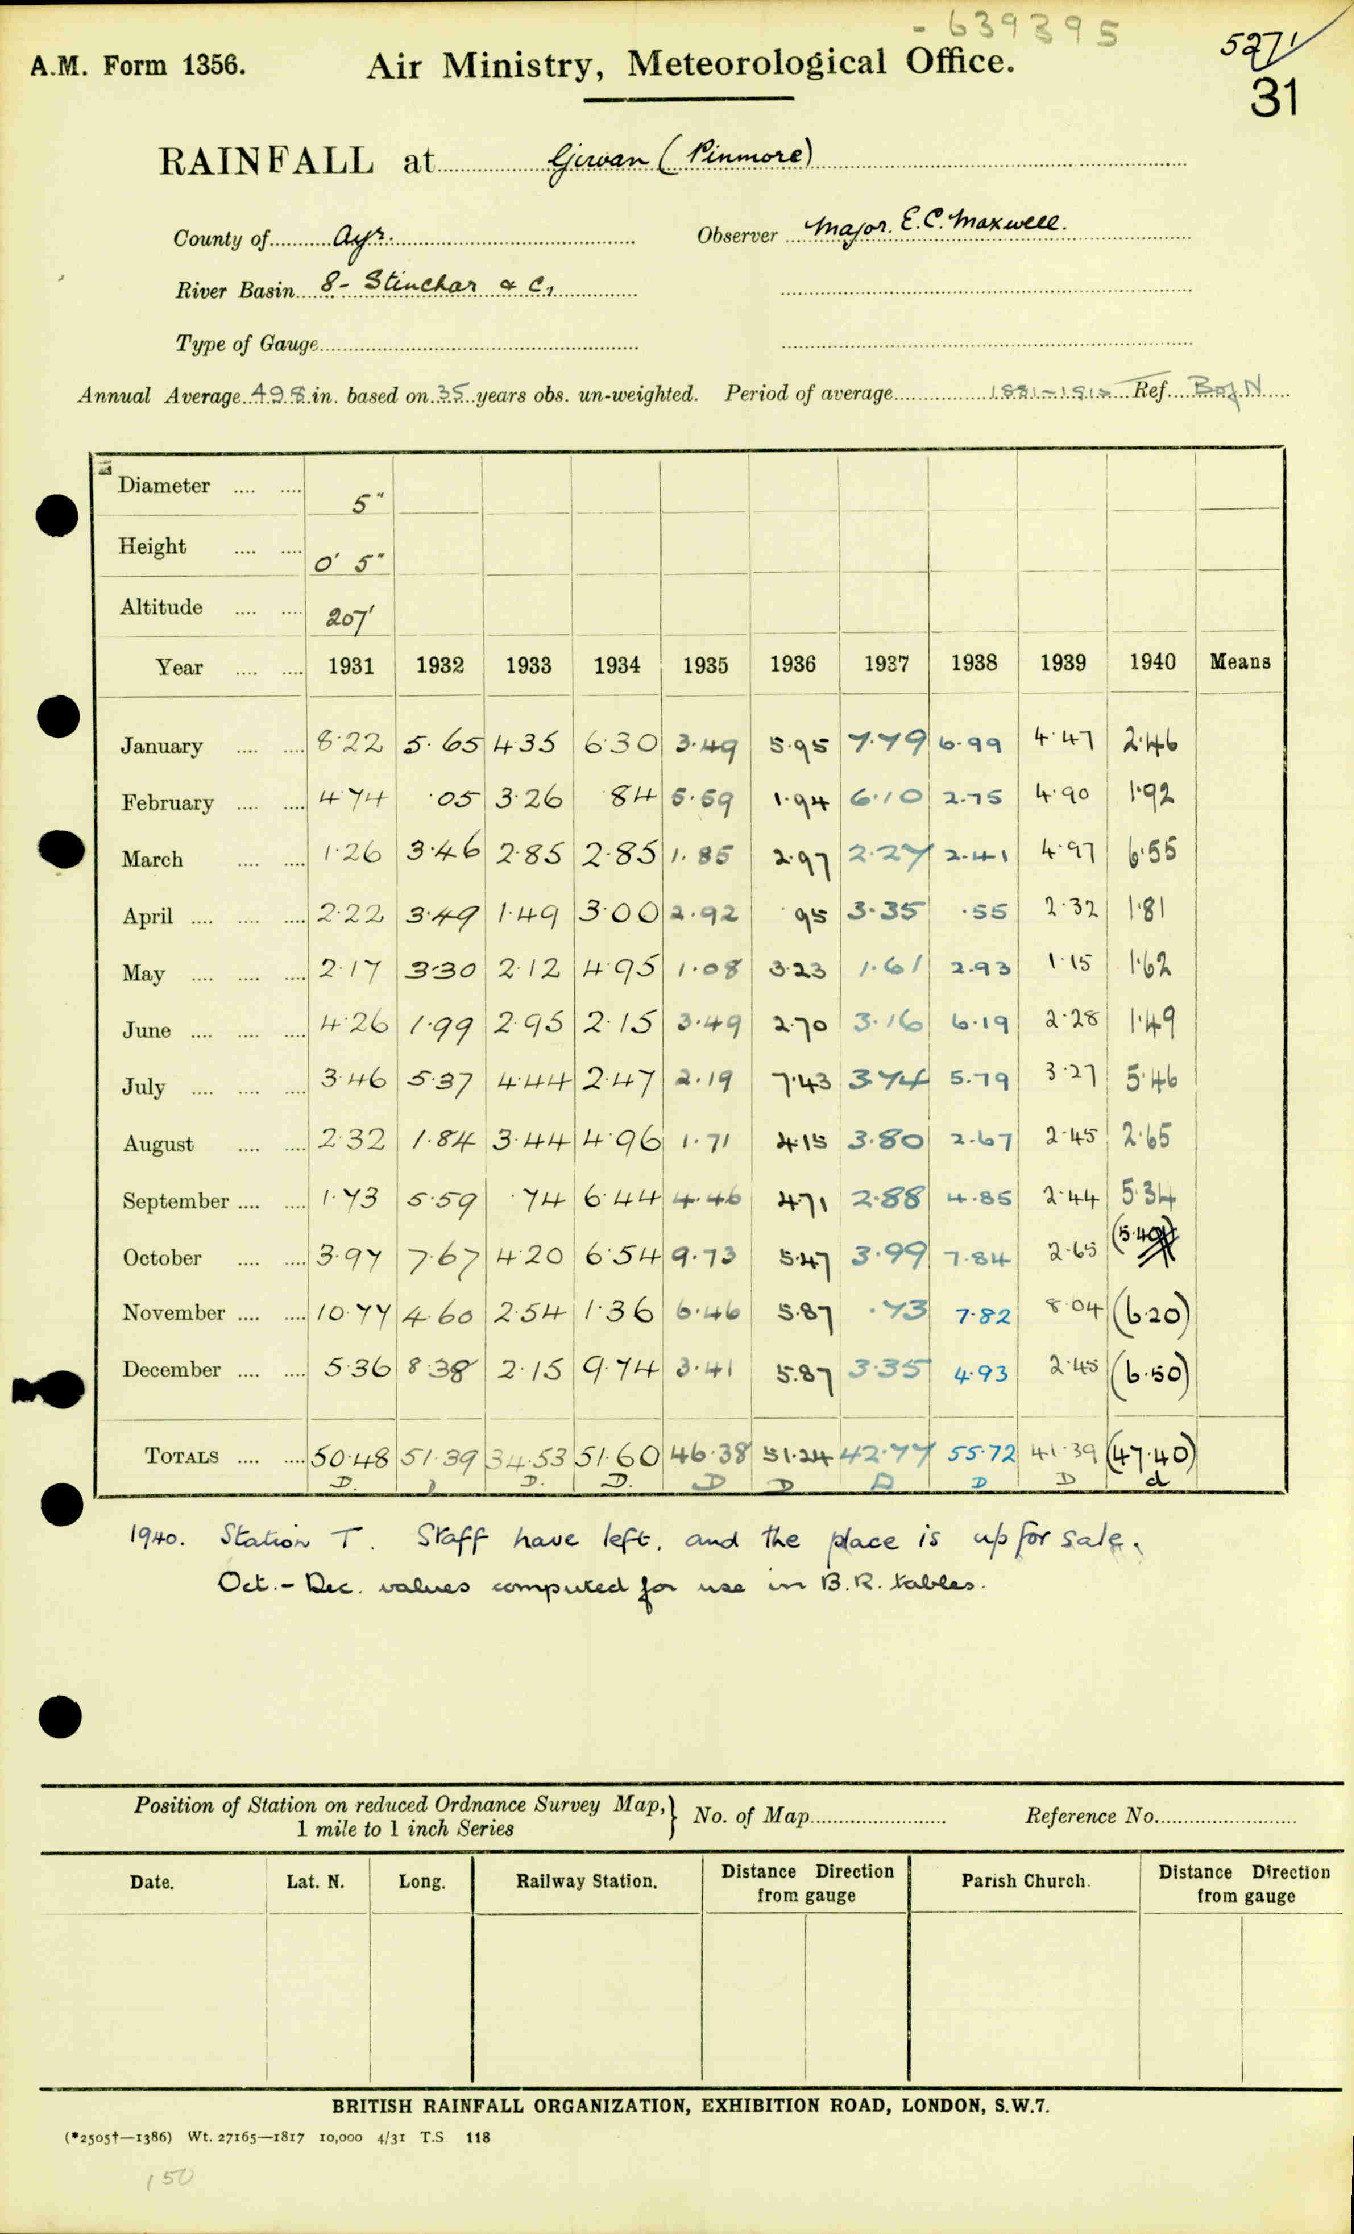 - 639395
5271
A.M. Form 1356. Air Ministry, Meteorological Office.
31
RAINFALL at Girvan (Pinmore)
County of Ayr. Observer Major. E.C. Maxwell.
River Basin 8- Stinchar & C,
Type of Gauge
Annual Average 49.8 in. based on 35 years obs. un-weighted. Period of average 1881-1915 Ref.
Diameter .... .... 5"
Height .... .... 0' 5"
Altitude .... .... 207'
Year .... .... 1931 1932 1933 1934 1935 1936 1937 1938 1939 1940 Means
January .... .... 8.22 5.65 4.35 6.30 3.49 5.95 7.79 6.99 4.47 2.46
February .... .... 4.74 .05 3.26 .84 5.59 1.94 6.10 2.75 4.90 1.92
March .... .... 1.26 3.46 2.85 2.85 1.85 2.97 2.27 2.41 4.97 6.55
April .... .... .... 2.22 3.49 1.49 3.00 2.92 .95 3.35 .55 2.32 1.81
May .... .... .... 2.17 3.30 2.12 4.95 1.08 3.23 1.61 2.93 1.15 1.62
June .... .... .... 4.26 1.99 2.95 2.15 3.49 2.70 3.16 6.19 2.28 1.49
July .... .... .... 3.46 5.37 4.44 2.47 2.19 7.43 3.74 5.79 3.27 5.46
August .... .... 2.32 1.84 3.44 4.96 1.71 4.15 3.80 2.67 2.45 2.65
September .... .... 1.73 5.59 .74 6.44 4.46 4.71 2.88 4.85 2.44 5.34
October .... .... 3.97 7.67 4.20 6.54 9.73 5.47 3.99 7.84 2.65 (5.40)
November .... .... 10.77 4.60 2.54 1.36 6.46 5.87 .73 7.82 8.04 (6.20)
December .... .... 5.36 8.38 2.15 9.74 3.41 5.87 3.35 4.93 2.45 (6.50)
TOTALS .... .... 50.48 51.39 34.53 51.60 46.38 51.24 42.77 55.72 41.39 (47.40)
D. D. D. D D D D D d
1940. Station T. Staff have left, and the place is up for sale.
Oct. - Dec. values computed for use in B.R. tables.
Position of Station on reduced Ordnance Survey Map,} No. of Map Reference No.
1 mile to 1 inch Series
Date. Lat. N. Long. Railway Station. Distance Direction from gauge Parish Church. Distance Direction from gauge
BRITISH RAINFALL ORGANIZATION, EXHIBITION ROAD, LONDON, S.W.7.
(*2505†—1386) Wt. 27165—1817 10,000 4/31 T.S 118
150